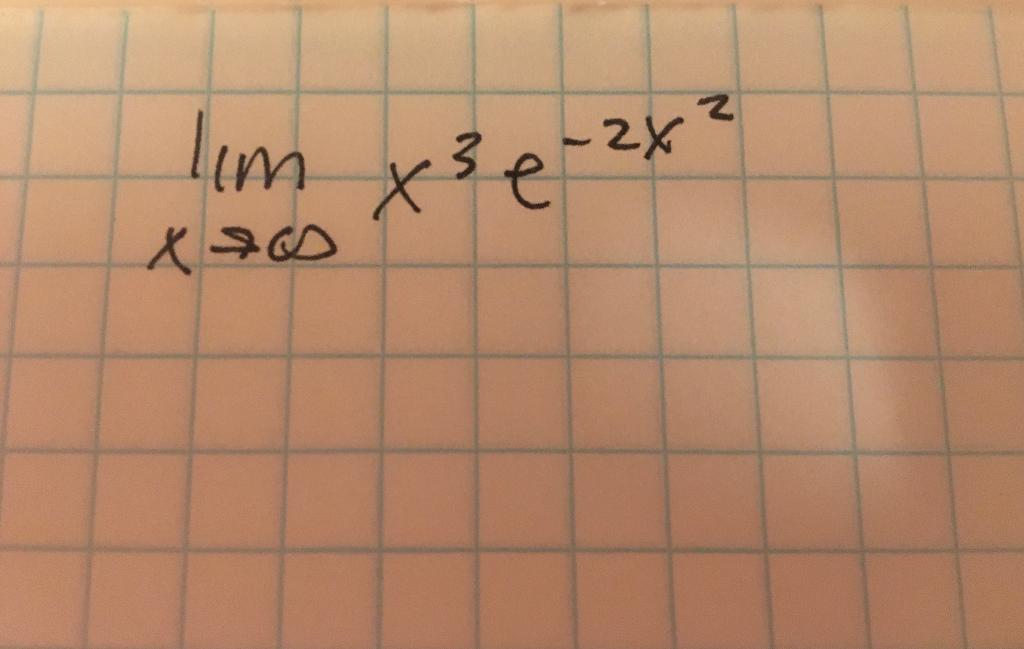 lim x³e⁻²ˣ²
x→∞